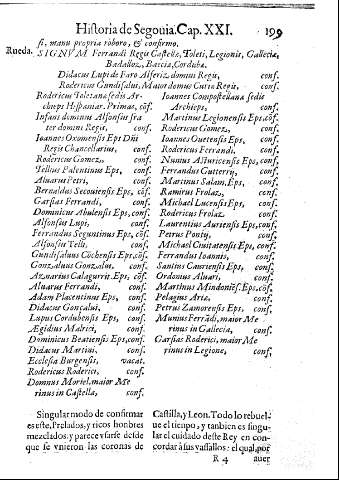 Historia de Segouia. Cap. XXI. 199
si, manu propria roboro, & confirmo.
Rueda. SIGNVM Ferrandi Regis Castellæ, Toleti, Legionis, Galleciæ,
Badalloz, Baecia, Corduba.
Didacus Lupi de Faro Alferiz domini Regis, conf.
Rodericus Gundisalui, Maior domus Curiæ Regis, conf.
Rodericus Toletanæ sedis Ar-
chieps Hispaniar. Primas, cōf.
Infans dominus Alfonsus fra
ter domini Regis, conf.
Ioannes Oxomensis Eps Dñi
Regis Chancellarius, conf.
Rodericus Gomez, conf.
Tellius Palentinus Eps, conf.
Aluarus Petri, conf.
Bernaldus Secouiensis Eps, cōf.
Garsias Ferrandi, conf.
Dominicus Abulensis Eps, conf.
Alfonsus Lupi, conf.
Ferrandus Seguntinus Eps, cōf.
Alfonsus Telli, conf.
Gundisaluus Cōchensis Eps, cōf.
Gonzaluus Gonzalui, conf.
Aznarius Calagurrit. Eps, cōf.
Aluarus Ferrandi, conf.
Adam Placentinus Eps, conf.
Didacus Gonçalui, conf.
Lupus Cordubensis Eps, conf.
Ægidius Malrici, conf.
Dominicus Beatiensis Eps, conf.
Didacus Martini, conf.
Ecclesia Burgensis, vacat.
Rodericus Roderici, conf.
Domnus Moriel, maior Me
rinus in Castella, conf.
Ioannes Compostellanæ sedis
Archieps, conf.
Martinus Legionensis Eps, cōf.
Rodericus Gomez, conf.
Ioannes Ouetensis Eps, conf.
Rodericus Ferrandi, conf.
Nunius Asturicensis Eps, conf.
Ferrandus Gutterri, conf.
Martinus Salam. Eps, conf.
Ramirus Frolaz, conf.
Michael Lucensis Eps, conf.
Rodericus Frolaz, conf.
Laurentius Auriensis Eps, conf.
Petrus Pontij, conf.
Michael Ciuitatensis Eps, conf.
Ferrandus Ioannis, conf.
Sanitus Cauriensis Eps, conf.
Ordonius Aluari, conf.
Martinus Mindoniēs. Eps, conf.
Pelagius Ariæ, conf.
Petrus Zamorensis Eps, conf.
Munius Ferrādi, maior Me
rinus in Gallecia, conf.
Garsias Roderici, maior Me
rinus in Legione, conf.
Singular modo de confirmar
es este, Prelados, y ricos hombres
mezclados: y parece vsarse desde
que se vnieron las coronas de
Castilla, y Leon. Todo lo rebuel-
ue el tiēpo, y tambien es singu-
lar el cuidado deste Rey en con-
cordar à sus vassallos: el qual por
R 4 auer